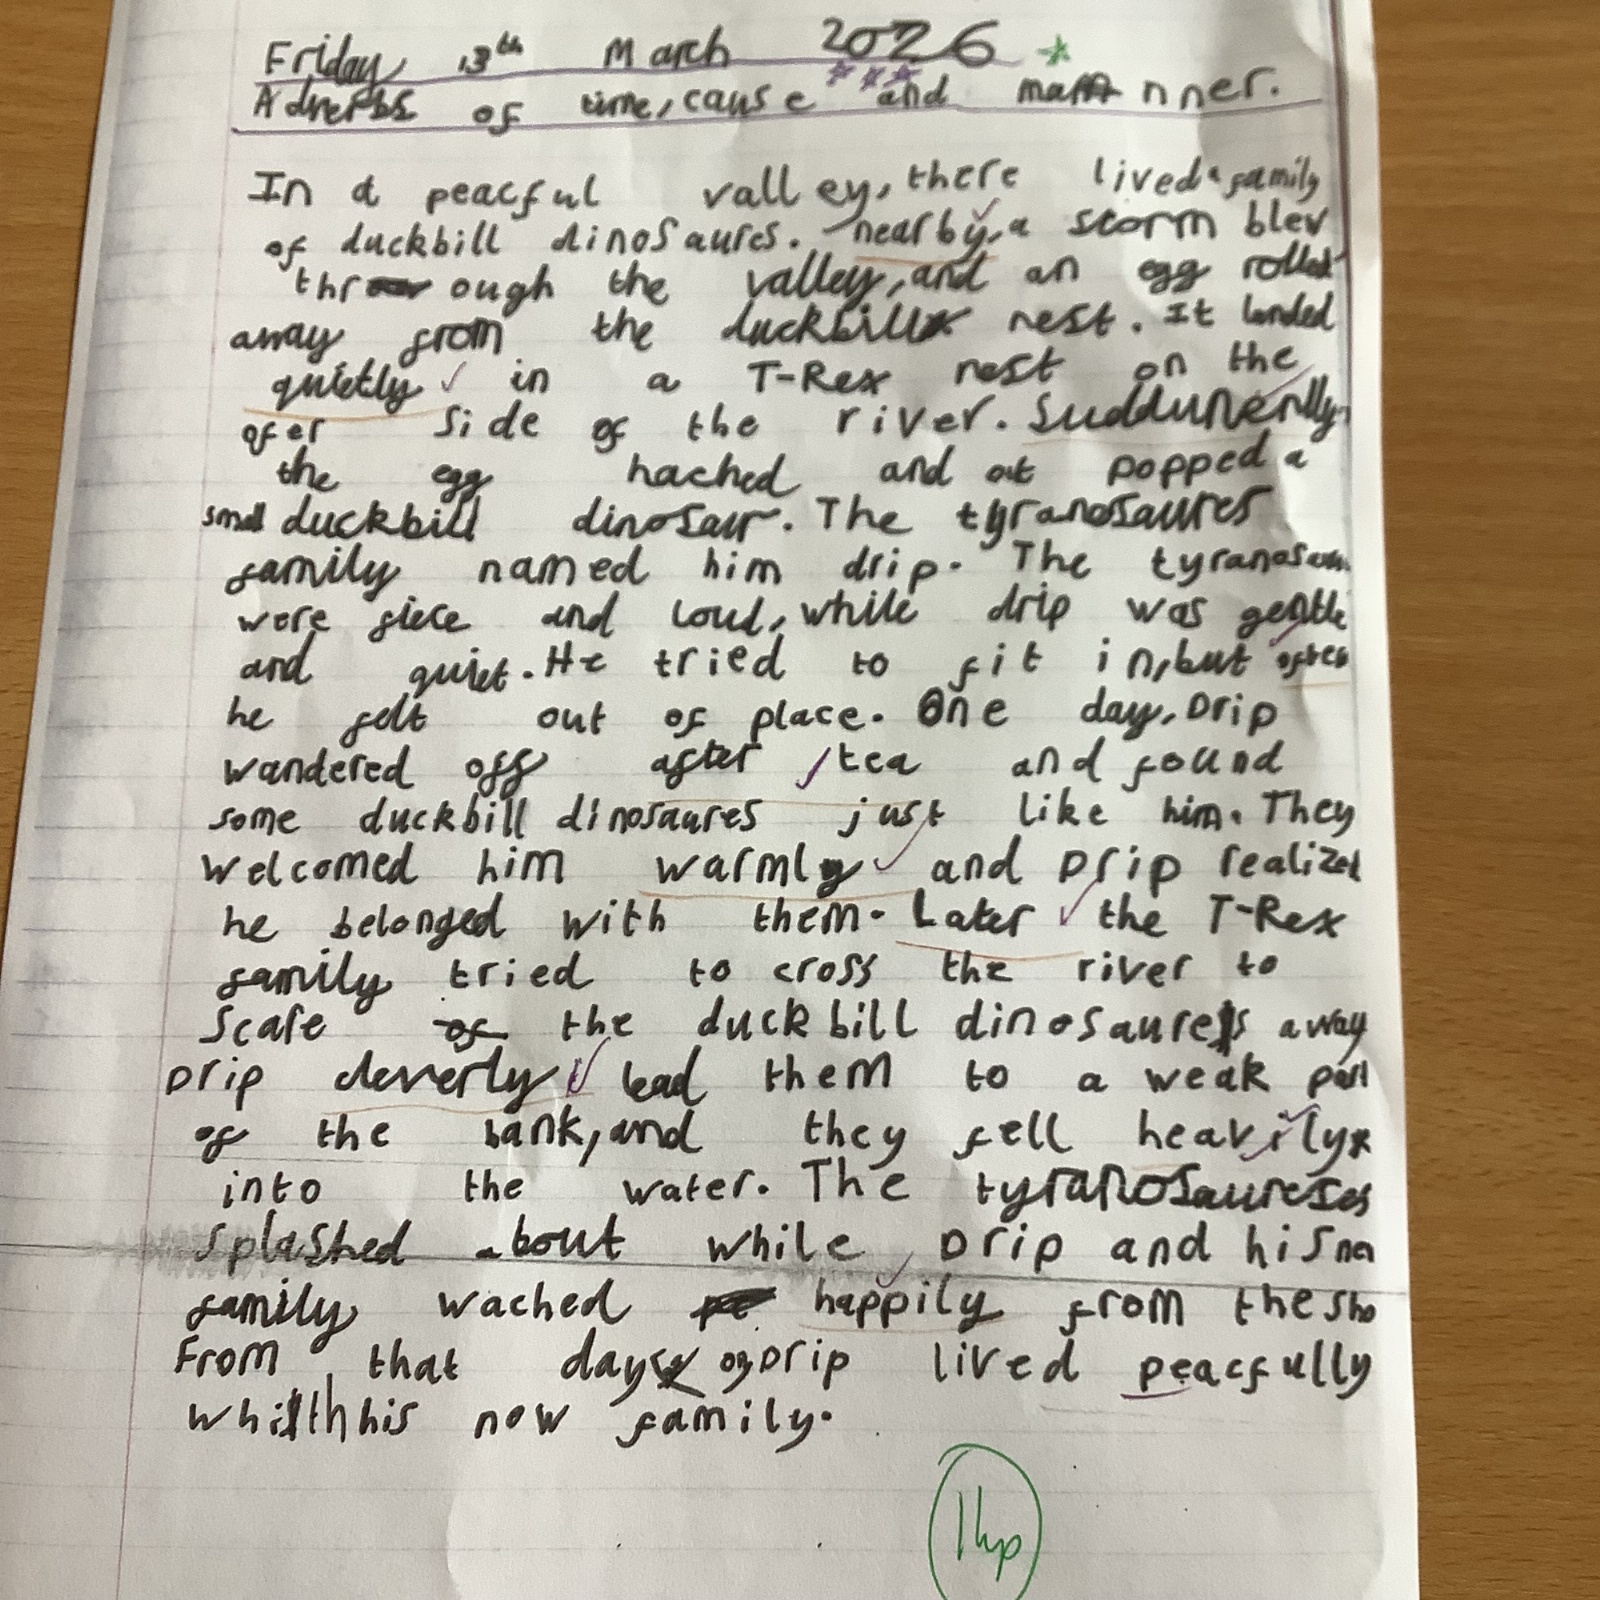 Friday 13th March 2026
Adverbs of time, cause and manner.
In a peacful valley, there lived a family
of duckbill dinosaures. nearby, a storm blew
through the valley, and an egg rolled
away from the duckbill nest. It landed
quietly in a T-Rex nest on the
ofer side of the river. Suddunenlly,
the egg hached and out popped a
small duckbill dinosaur. The tyranosaures
family named him drip. The tyranosaures
were fiece and loud, while drip was gentle
and quiet. He tried to fit in, but often
he felt out of place. One day, Drip
wandered off after tea and found
some duckbill dinosaures just like him. They
welcomed him warmly and Drip realized
he belonged with them. Later the T-Rex
family tried to cross the river to
Scare the duckbill dinosaures away
Drip cleverly lead them to a weak part
of the bank, and they fell heavily
into the water. The tyranosaureses
splashed about while Drip and his new
family wached happily from the sho
From that day on Drip lived peacfully
whith his now family.
1hp